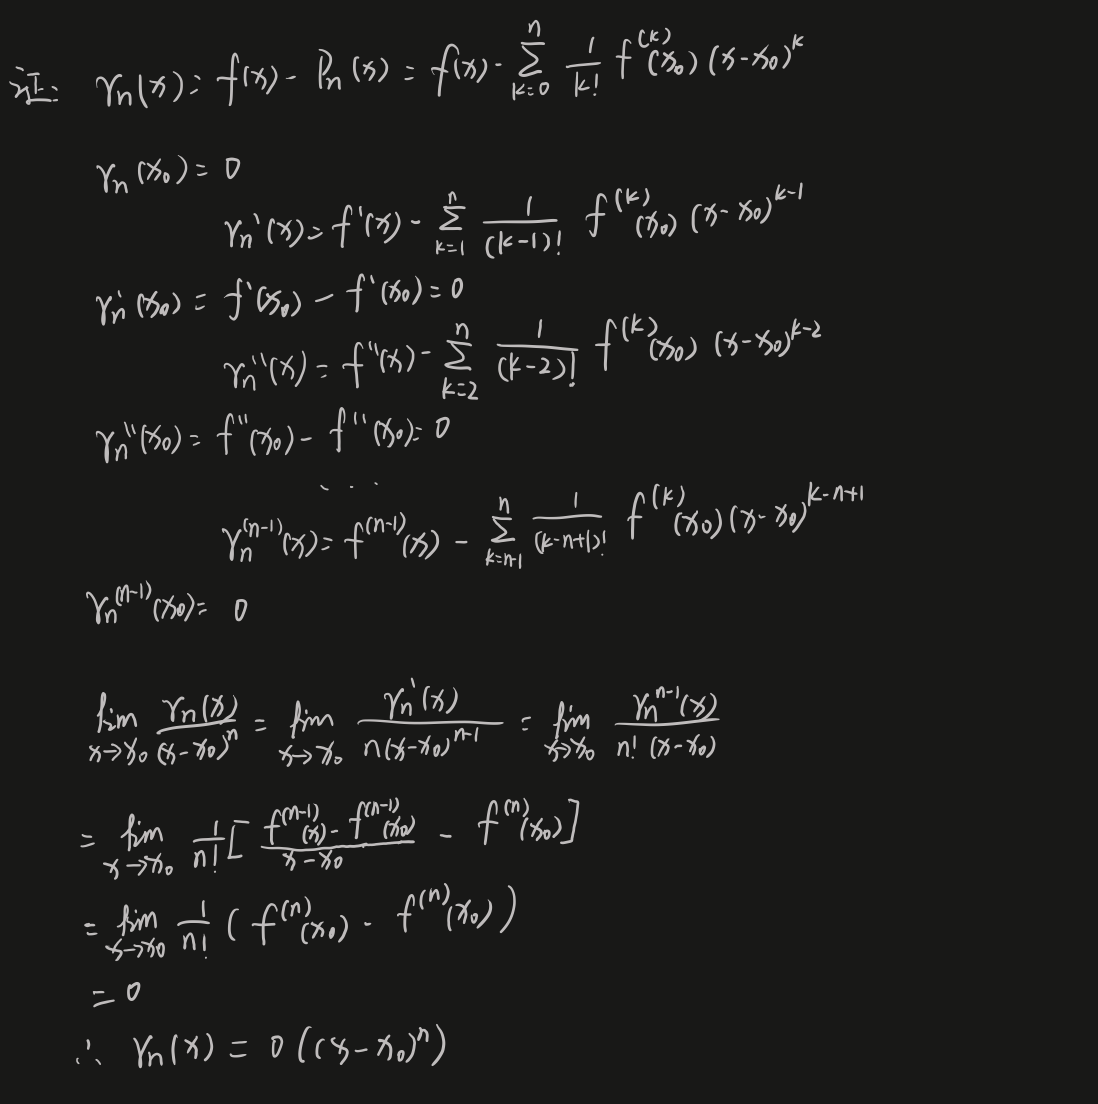 证: rₙ(x) = f(x) - Pₙ(x) = f(x) - ∑_{k=0}^{n} \frac{1}{k!} f^{(k)}(x₀) (x-x₀)^k
rₙ(x₀) = 0
rₙ'(x) = f'(x) - ∑_{k=1}^{n} \frac{1}{(k-1)!} f^{(k)}(x₀) (x-x₀)^{k-1}
rₙ'(x₀) = f'(x₀) - f'(x₀) = 0
rₙ''(x) = f''(x) - ∑_{k=2}^{n} \frac{1}{(k-2)!} f^{(k)}(x₀) (x-x₀)^{k-2}
rₙ''(x₀) = f''(x₀) - f''(x₀) = 0
...
rₙ^{(n-1)}(x) = f^{(n-1)}(x) - ∑_{k=n-1}^{n} \frac{1}{(k-n+1)!} f^{(k)}(x₀) (x-x₀)^{k-n+1}
rₙ^{(n-1)}(x₀) = 0
lim_{x→x₀} \frac{rₙ(x)}{(x-x₀)^n} = lim_{x→x₀} \frac{rₙ'(x)}{n(x-x₀)^{n-1}} = lim_{x→x₀} \frac{rₙ^{n-1}(x)}{n!(x-x₀)}
= lim_{x→x₀} \frac{1}{n!} [ \frac{f^{(n-1)}(x) - f^{(n-1)}(x₀)}{x-x₀} - f^{(n)}(x₀) ]
= lim_{x→x₀} \frac{1}{n!} ( f^{(n)}(x₀) - f^{(n)}(x₀) )
= 0
∴ rₙ(x) = o((x-x₀)^n)